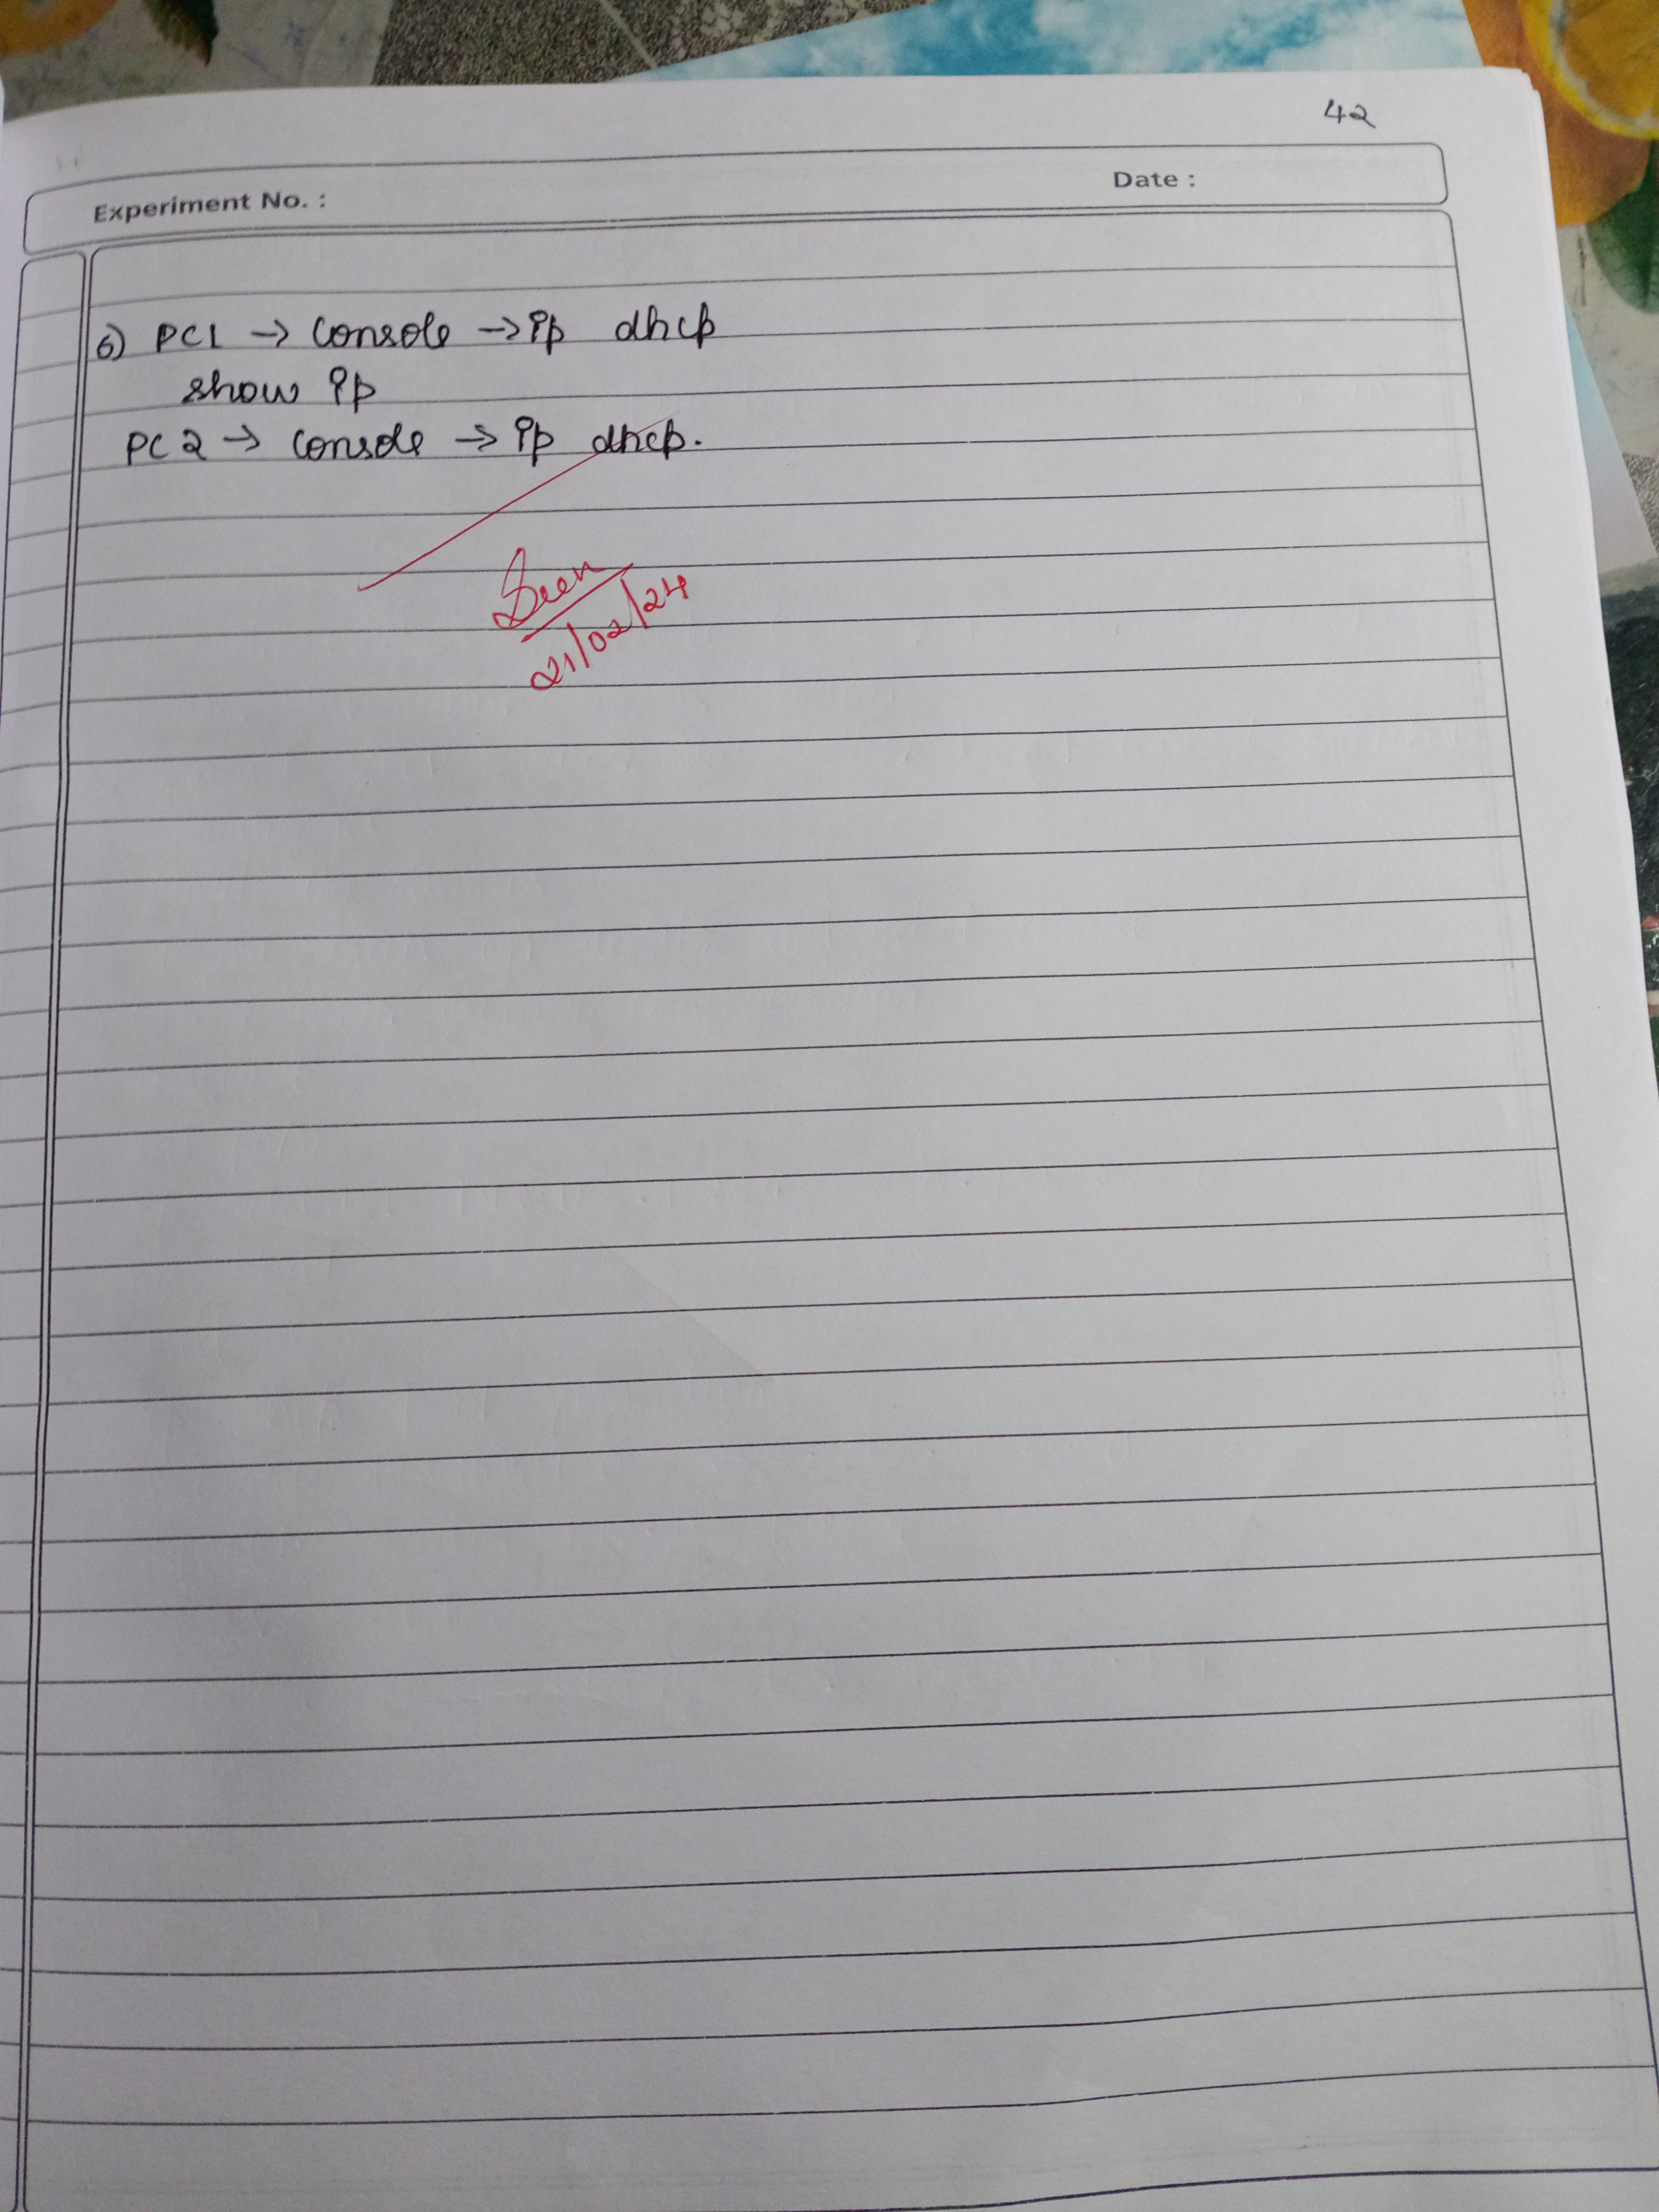 42
Experiment No. : Date :
6) PC1 → Console → ip dhcp
show ip
PC2 → console → ip dhcp.
Seen
21/02/24